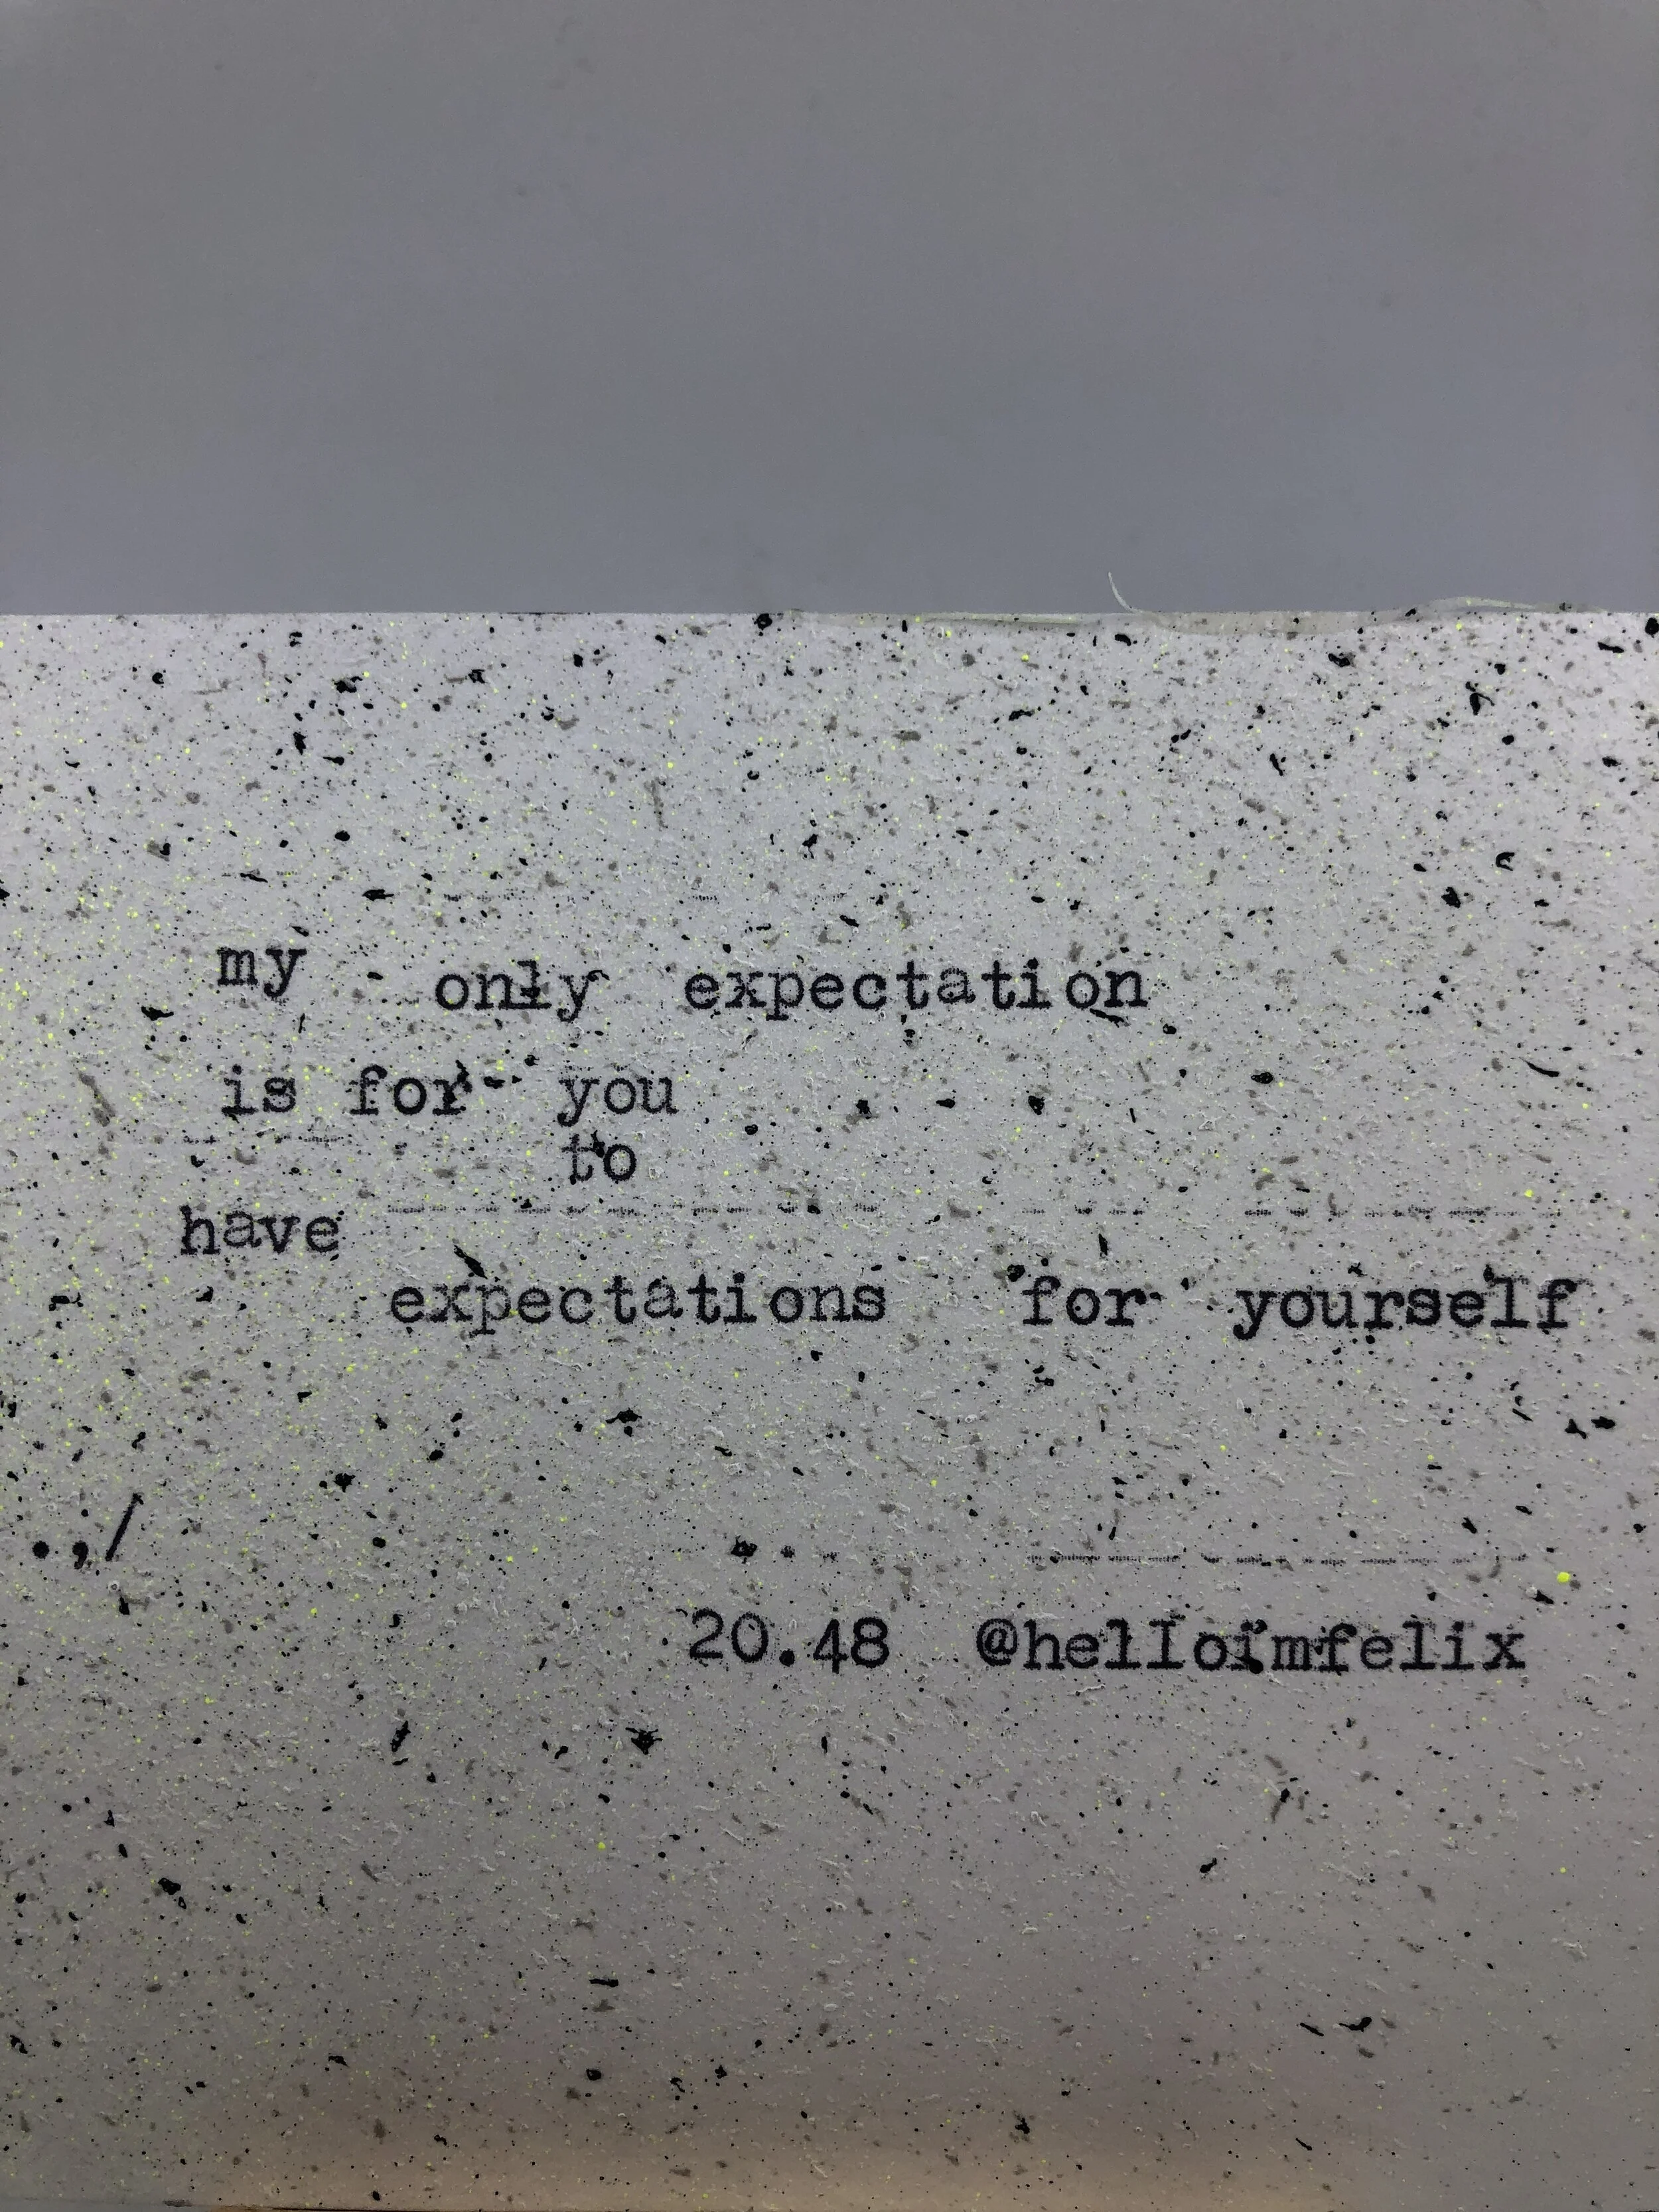 my only expectation
is for you
to
have
expectations for yourself
.,/
20.48 @helloimfelix